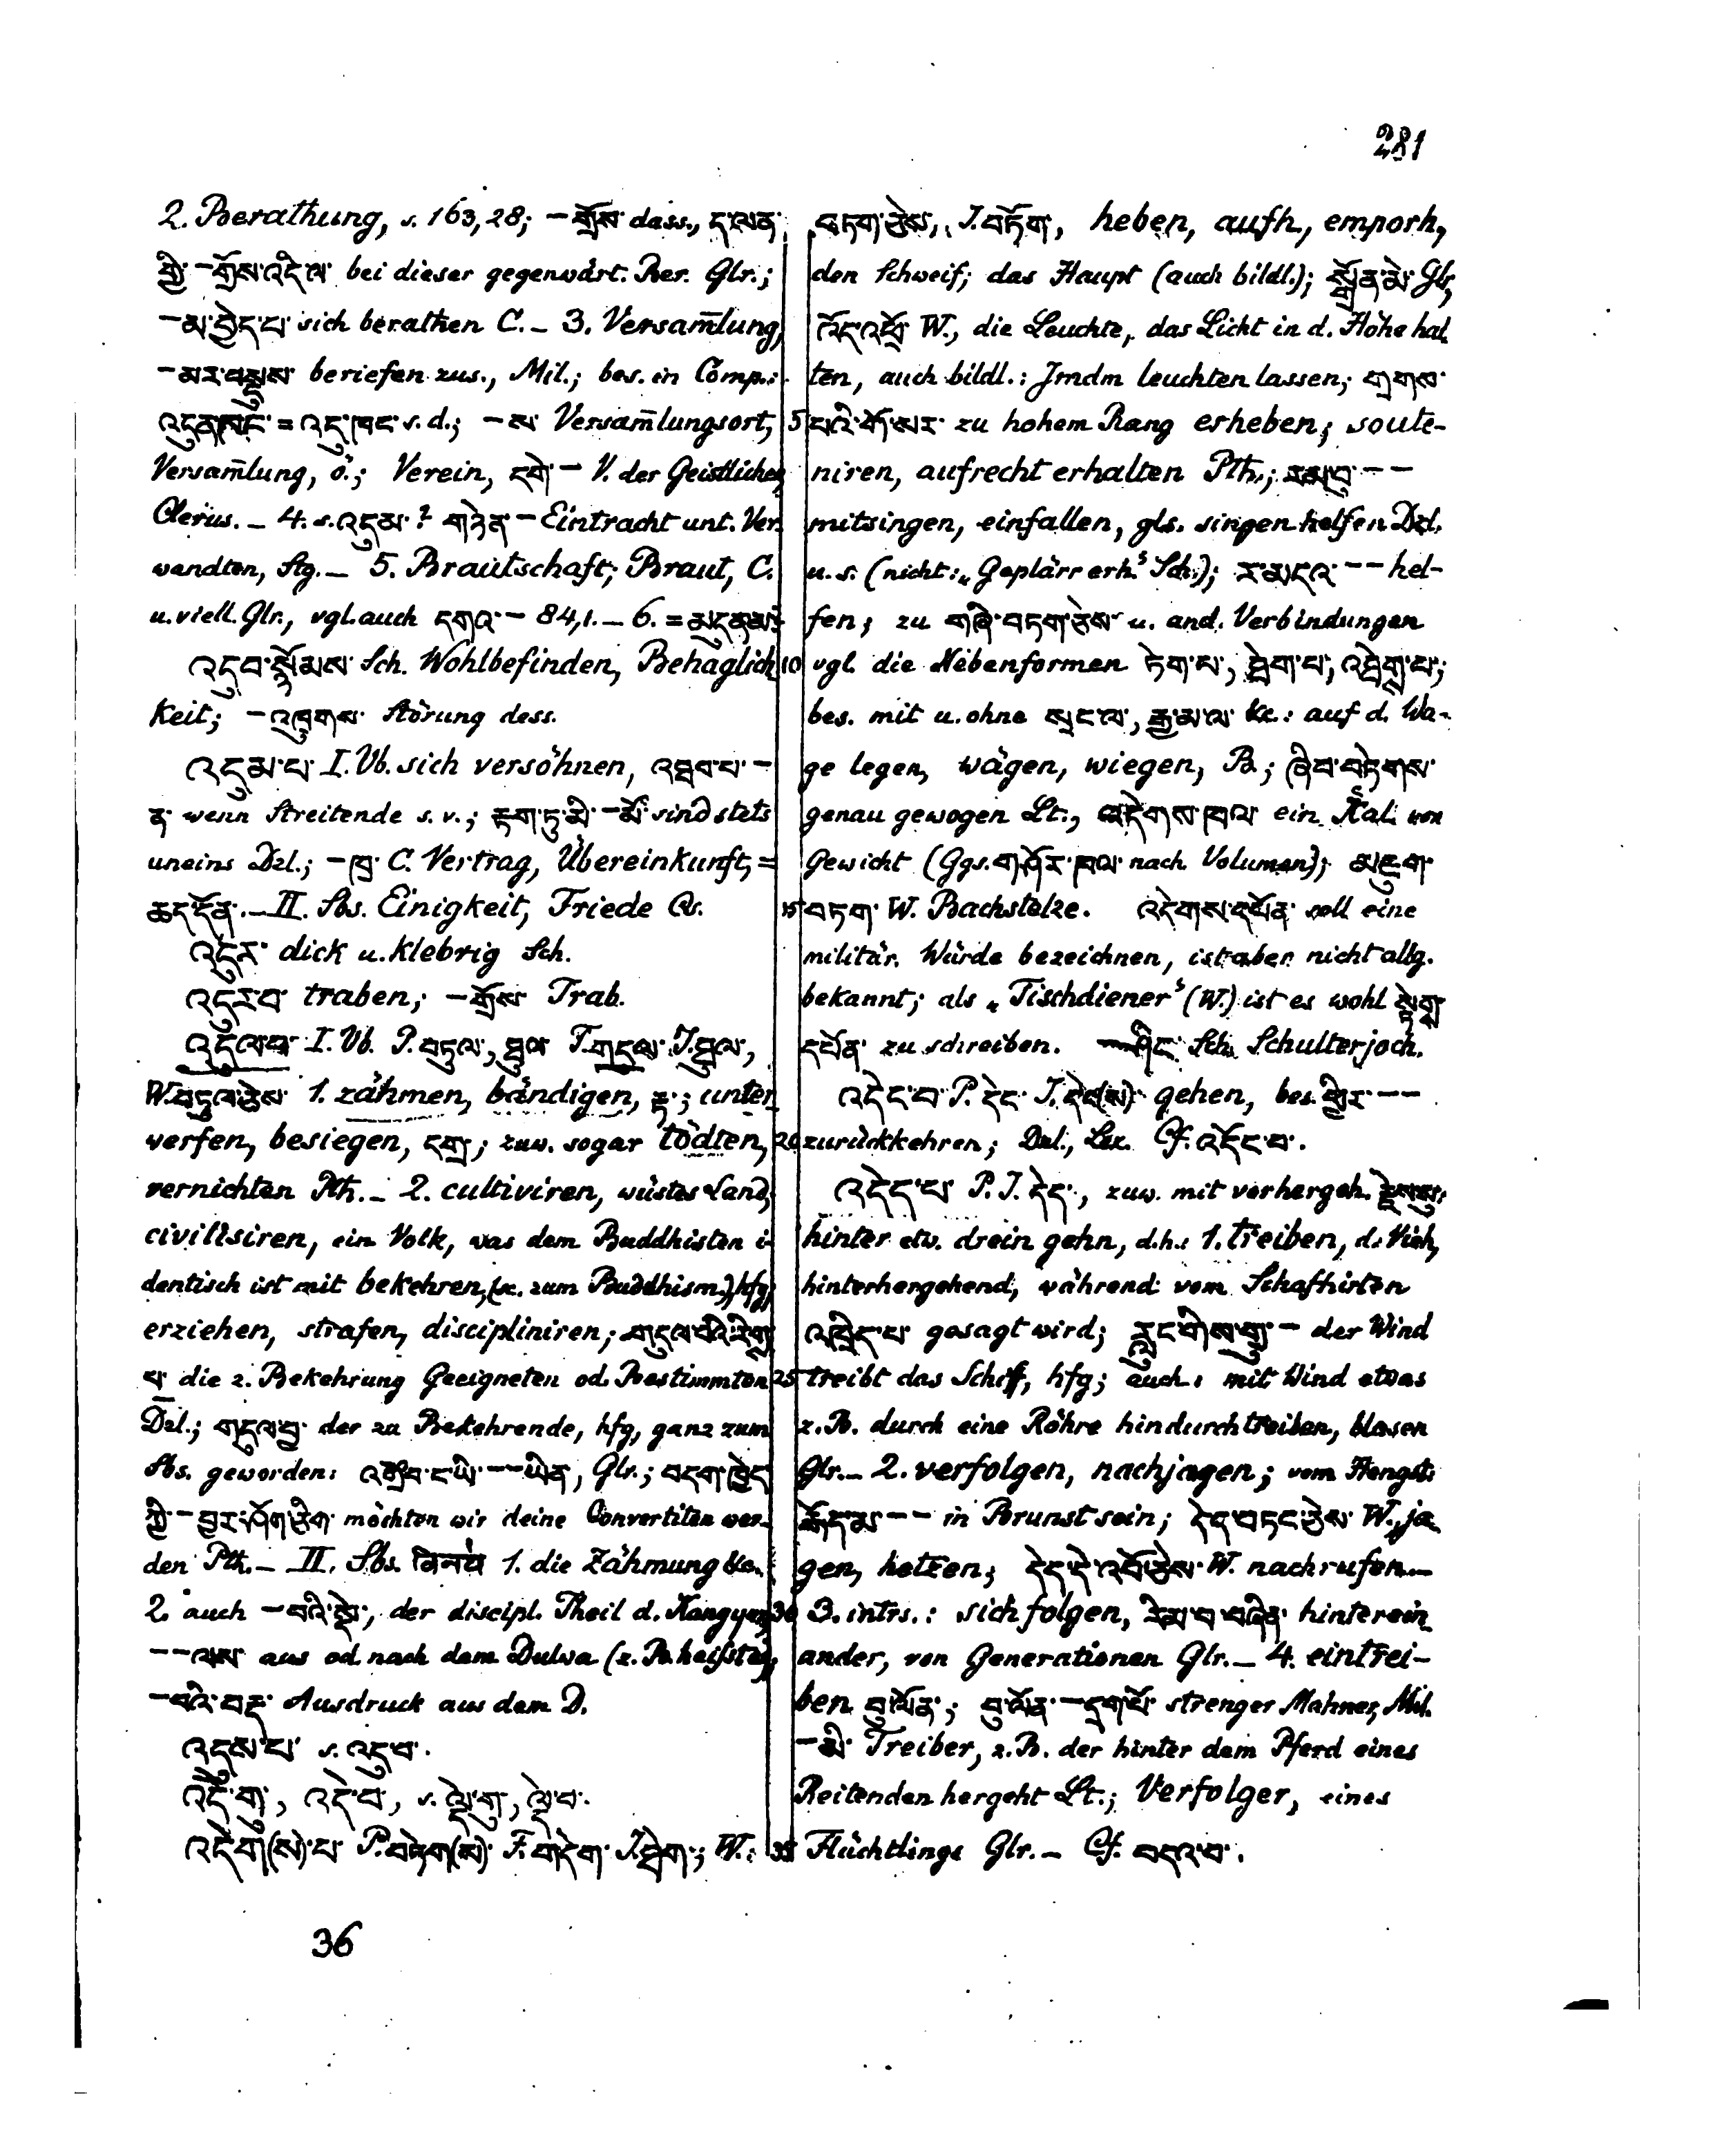 281
2. Berathung, s. 163,28; –གྲོས་ dass., ད་ལན་
གྱི་–གྲོས་འདི་ལ་ bei dieser gegenwärt. Ber. Glr.;
–མ་བྱེད་པ་ sich berathen C. – 3. Versam̄lung,
–མར་བསྡུས་ beriefen zus., Mil.; bes. in Comp.:
འདུན་ཁང་ = འདུ་ཁང་ s. d.; –ས་ Versam̄lungsort,
Versam̄lung, ö.; Verein, དགེ་– V. der Geistlichen,
Clerus. – 4. s. འདུམ་? གཉེན་– Eintracht unt. Ver-
wandten, Stg. – 5. Brautschaft; Braut, C.
u. viell. Glr., vgl. auch དགའ་– 84,1. – 6. = མདུན་མ་
འདུབ་སྙོམས་ Sch. Wohlbefinden, Behaglich-
keit; –འཁྲུགས་ Störung dess.
འདུམ་པ་ I. Vb. sich versöhnen, འཐབ་པ་–
ན་ wenn Streitende s. v.; རྟག་ཏུ་མི་–མོ་ sind stets
uneins Dzl.; –ཁྲ་ C. Vertrag, Übereinkunft, =
ཆད་དོན་. – II. Sbs. Einigkeit, Friede Cs.
འདུར་ dick u. klebrig Sch.
འདུར་བ་ traben; –གྲོས་ Trab.
འདུལ་བ་ I. Vb. P. བཏུལ་, ཐུལ་ F. གདུལ་ I. ཐུལ་,
W. བཏུལ་ཅེས་ 1. zähmen, bändigen, རྟ་; unter-
werfen, besiegen, དགྲ་; zuw. sogar tödten,
vernichten Pth. – 2. cultiviren, wüstes Land,
civilisiren, ein Volk, was dem Buddhisten i-
dentisch ist mit bekehren, (sc. zum Buddhism.), hfg,
erziehen, strafen, discipliniren; གདུལ་བའི་རིགས་
པ་ die z. Bekehrung Geeigneten od. Bestimmten
Dzl.; གདུལ་བྱ་ der zu Bekehrende, hfg, ganz zum
Sbs. geworden: འགྲོ་བ་ང་ཡི་––ཡིན་, Glr.; བདག་ཁྱེད་
ཀྱི་–བྱར་ཤོག་ཅིག་ möchten wir deine Convertiten wer-
den Pth. – II. Sbs. विनय 1. die Zähmung &c.
2. auch –བའི་སྡེ་, der discipl. Theil d. Kangyur,
––ལས་ aus od. nach dem Dulwa (z. B. heisst es),
–བའི་བརྡ་ Ausdruck aus dem D.
འདུས་པ་ s. འདུ་བ་.
འདེ་གུ་, འདེ་བ་, s. ལྡེ་གུ་, ལྡེ་བ་.
འདེག(ས)་པ་ P. བཏེག(ས)་ F. གདེག་ I. ཐེག་; W.
བཏག་ཅེས་, I. བཏོག་, heben, aufh., emporh.,
den Schweif; das Haupt (auch bildl.); སྒྲོན་མེ་ Glr,
འོད་འཕྲོ་ W., die Leuchte, das Licht in d. Höhe hal-
ten, auch bildl.: Jmdm leuchten lassen; གྲགས་
5 པའི་གོ་སར་ zu hohem Rang erheben; soute-
niren, aufrecht erhalten Pth.; རམ་བུ་––
mitsingen, einfallen, gls. singen helfen Dzl.
u. s. (nicht: „Geplärr erh.“ Sch.); ར་མདའ་–– hel-
fen; zu གཞི་བཏག་ཅེས་ u. and. Verbindungen
10 vgl. die Nebenformen ཏེག་པ་, ཐེག་པ་, འཐེགས་པ་;
bes. mit u. ohne སྲང་ལ་, རྒྱ་མ་ལ་ &c.: auf d. Wa-
ge legen, wägen, wiegen, B.; ཞིབ་བཏེགས་
genau gewogen Lt., འདེགས་ཁལ་ ein Kal. von
Gewicht (Ggs. གཤོར་ཁལ་ nach Volumen); མཇུག་
15 བཏག་ W. Bachstelze. འདེགས་དཔོན་ soll eine
militär. Würde bezeichnen, ist aber nicht allg.
bekannt; als „Tischdiener“ (W.) ist es wohl སྟེགས་
དཔོན་ zu schreiben. –ཤིང་ Sch. Schulterjoch.
འདེང་བ་ P. དེང་ I. དེང(ས)་ gehen, bes. ཕྱིར་––
20 zurückkehren; Dzl., Lex. Cf. འདོང་བ་.
འདེད་པ་ P. I. དེད་, zuw. mit vorhergeh. རྗེས་སུ་,
hinter etw. drein gehn, d. h.: 1. treiben, d. Vieh,
hinterhergehend, während vom Schafhirten
འཁྲིད་པ་ gesagt wird; རླུང་གིས་གྲུ་– der Wind
25 treibt das Schiff, hfg; auch: mit Wind etwas
z. B. durch eine Röhre hindurchtreiben, blasen
Glr. – 2. verfolgen, nachjagen; vom Hengst:
རྒོད་མ་–– in Brunst sein; དེད་བཏང་ཅེས་ W., ja-
gen, hetzen; དེད་དེ་འབོ་ཅེས་ W. nachrufen. –
30 3. intrs.: sich folgen, རིམ་པ་བཞིན་ hinterein-
ander, von Generationen Glr. – 4. eintrei-
ben བུ་ལོན་; བུ་ལོན་–དྲག་པོ་ strenger Mahner, Mil.
–མི་ Treiber, z. B. der hinter dem Pferd eines
Reitenden hergeht Lt.; Verfolger, eines
35 Flüchtlings Glr. – Cf. བདའ་བ་.
36